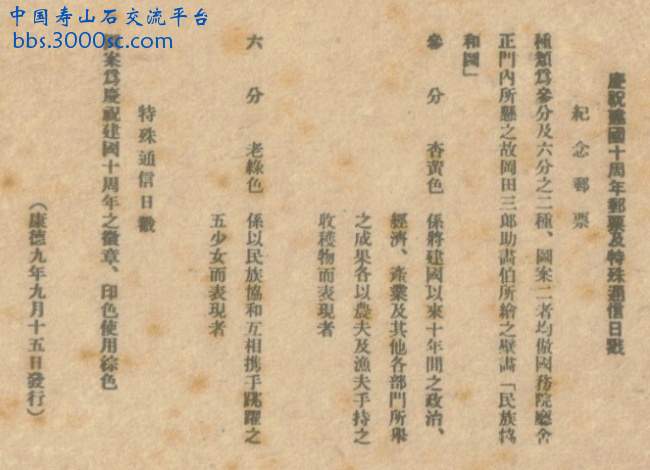 中国寿山石交流平台
bbs.3000sc.com
慶祝建國十周年郵票及特殊通信日戳
紀念郵票
種類爲參分及六分之二種、圖案二者均倣國務院廳舍
正門内所懸之故岡田三郎助畵伯所繪之壁畵「民族協
和圖」
參分 杏黃色 係將建國以來十年間之政治、
經濟、產業及其他各部門所舉
之成果各以農夫及漁夫手持之
收穫物而表現者
六分 老綠色 係以民族協和互相携手跳躍之
五少女而表現者
特殊通信日戳
案爲慶祝建國十周年之徽章、印色使用綜色
（康德九年九月十五日發行）